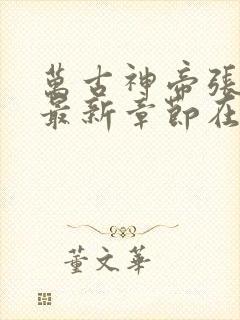 萬古神帝張
最新章節在
董文華